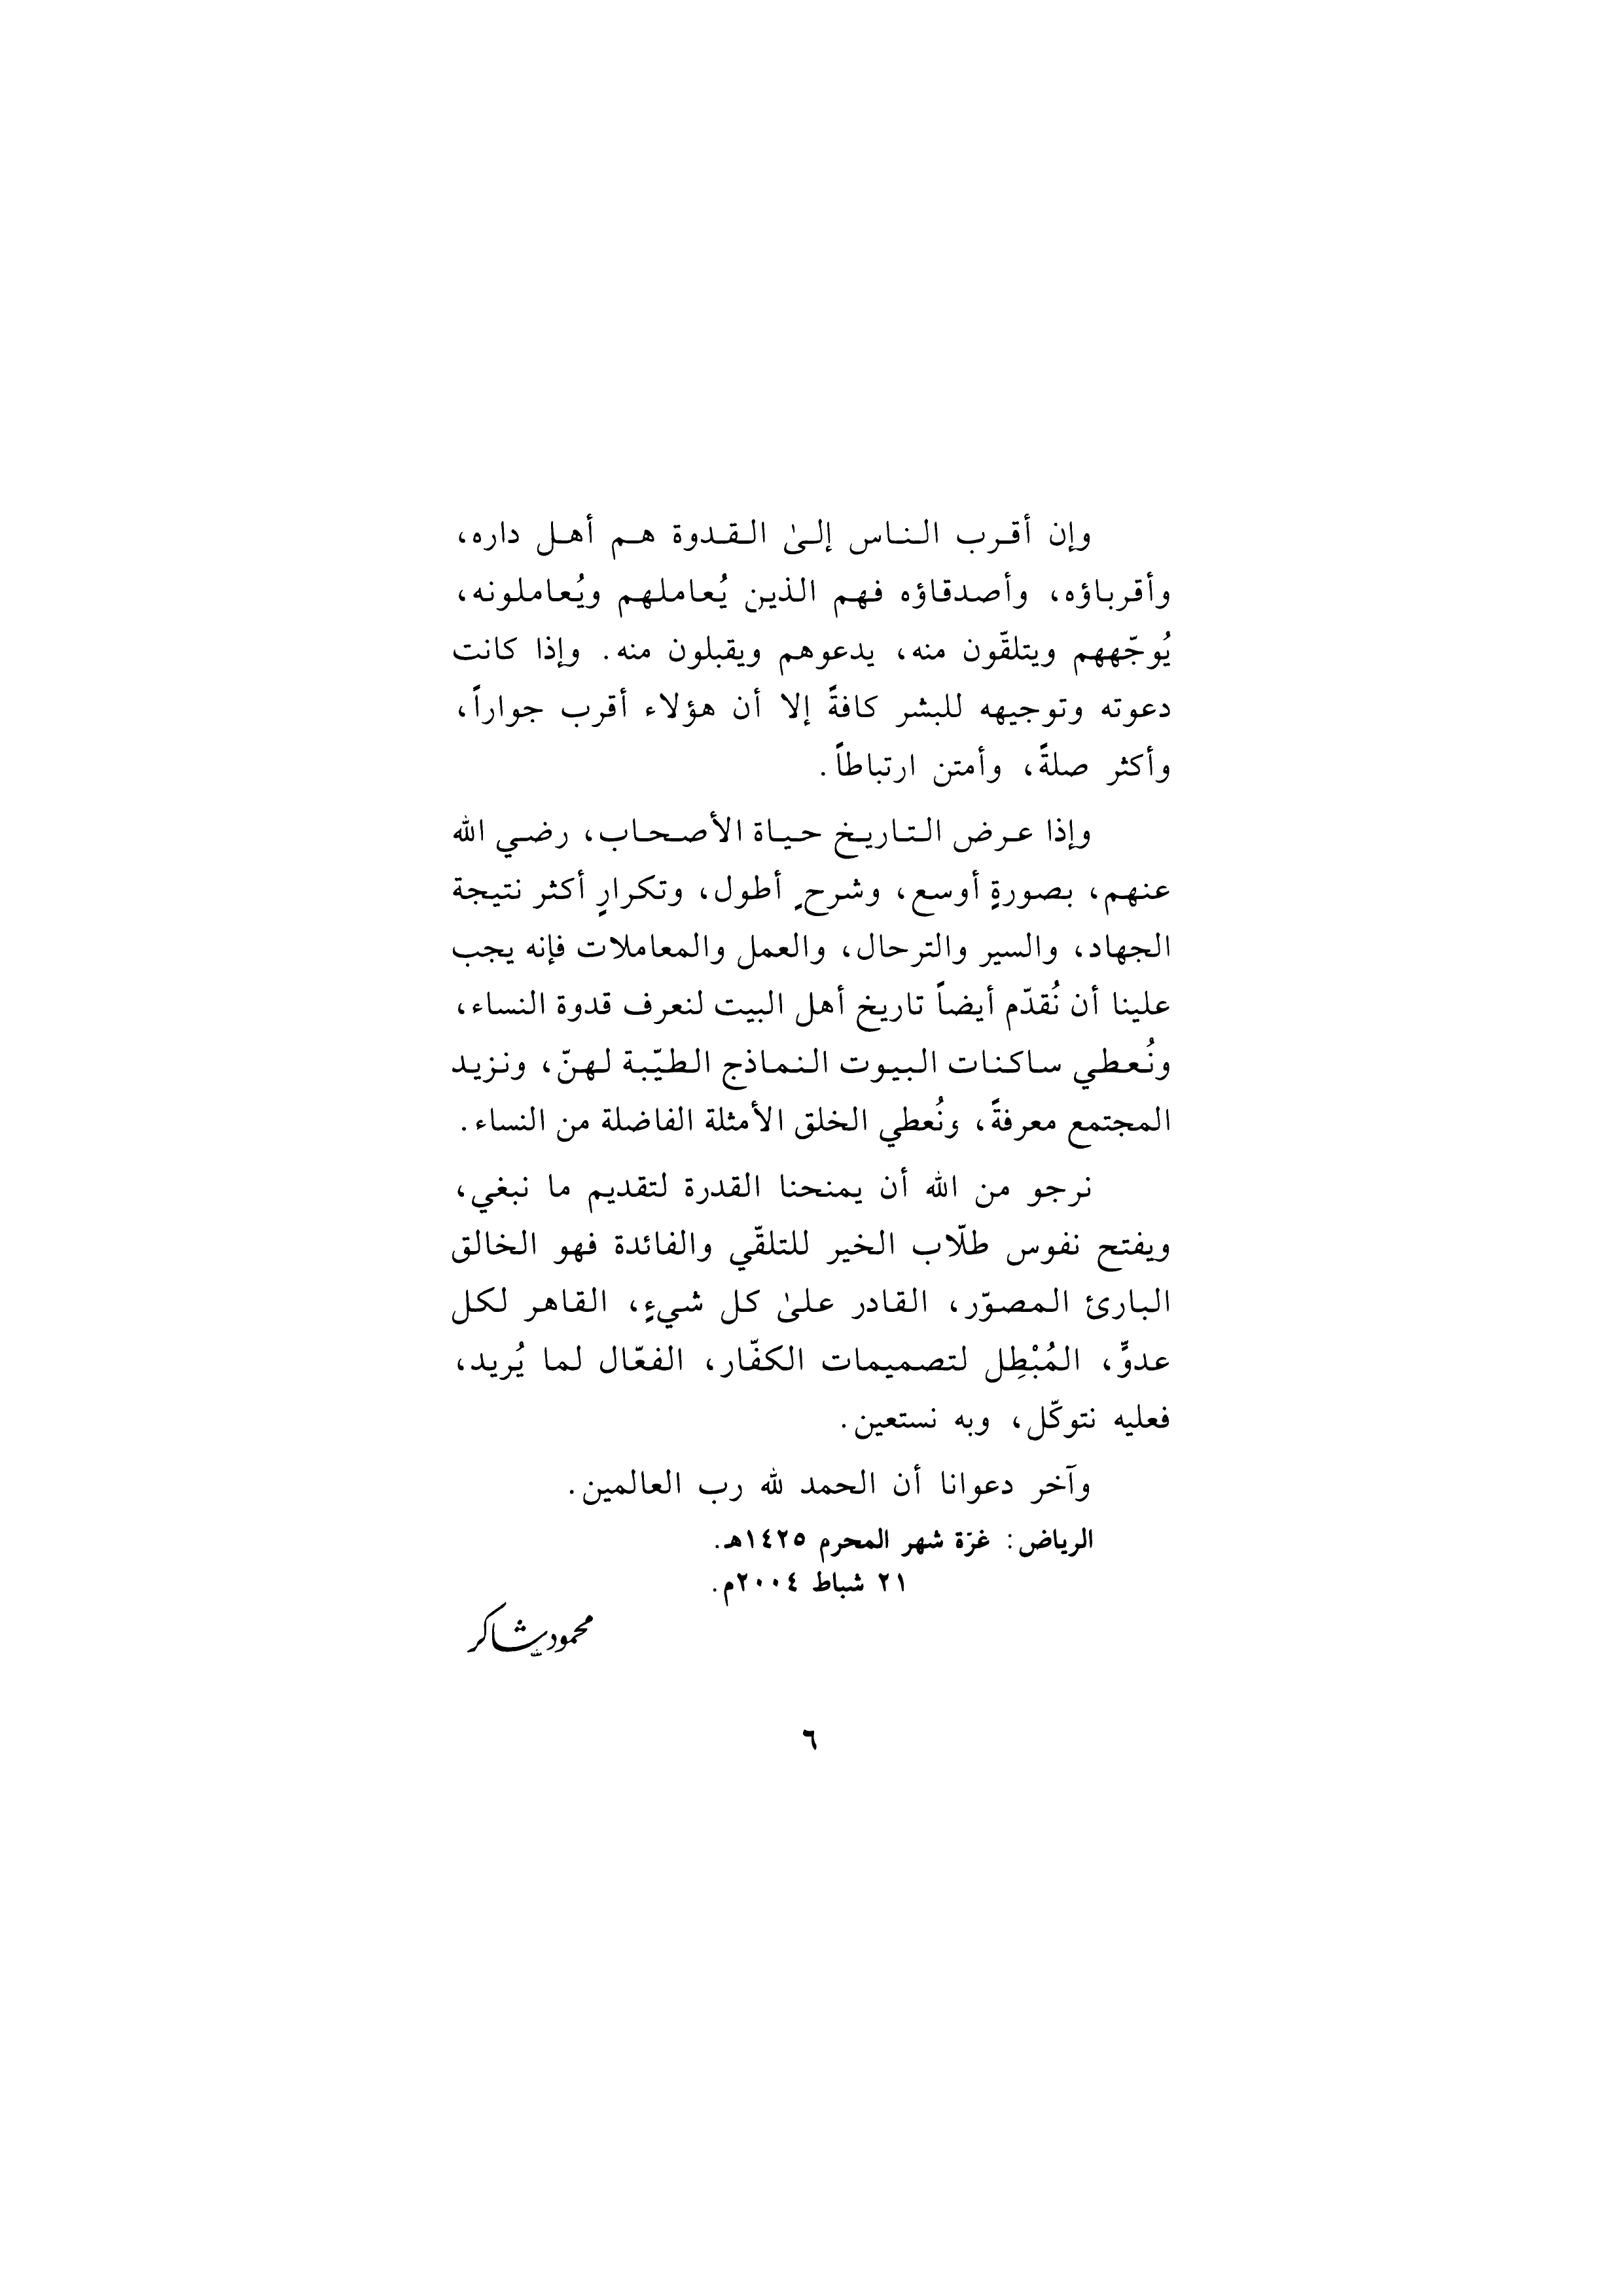 وإن أقرب الناس إلىٰ القدوة هم أهل داره،
وأقرباؤه، وأصدقاؤه فهم الذين يُعاملهم ويُعاملونه،
يُوجّههم ويتلقّون منه، يدعوهم ويقبلون منه. وإذا كانت
دعوته وتوجيهه للبشر كافةً إلا أن هؤلاء أقرب جواراً،
وأكثر صلةً، وأمتن ارتباطاً.
وإذا عرض التاريخ حياة الأصحاب، رضي الله
عنهم، بصورةٍ أوسع، وشرحٍ أطول، وتكرارٍ أكثر نتيجة
الجهاد، والسير والترحال، والعمل والمعاملات فإنه يجب
علينا أن نُقدّم أيضاً تاريخ أهل البيت لنعرف قدوة النساء،
ونُعطي ساكنات البيوت النماذج الطيّبة لهنّ، ونزيد
المجتمع معرفةً، ونُعطي الخلق الأمثلة الفاضلة من النساء.
نرجو من الله أن يمنحنا القدرة لتقديم ما نبغي،
ويفتح نفوس طلّاب الخير للتلقّي والفائدة فهو الخالق
البارئ المصوّر، القادر علىٰ كل شيءٍ، القاهر لكل
عدوٍّ، المُبْطِل لتصميمات الكفّار، الفعّال لما يُريد،
فعليه نتوكّل، وبه نستعين.
وآخر دعوانا أن الحمد لله رب العالمين.
الرياض: غرّة شهر المحرم ١٤٢٥هـ.
٢١ شباط ٢٠٠٤م.
محمود شاكر
٦